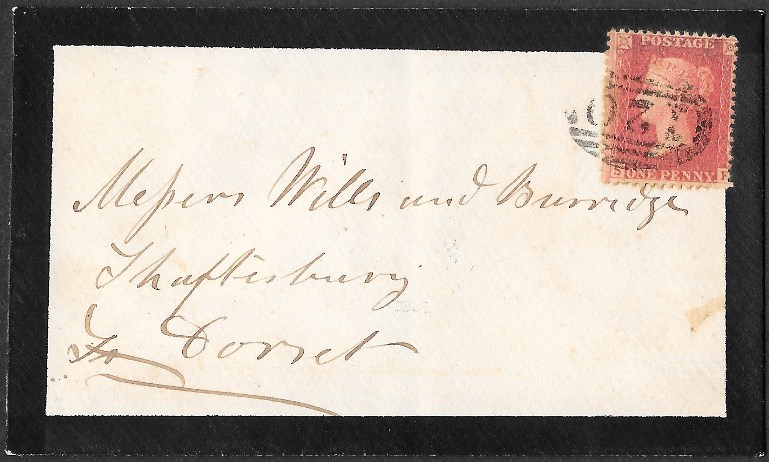 POSTAGE
ONE PENNY
Messers Wills and Burridge
Shaftesbury
Dorset